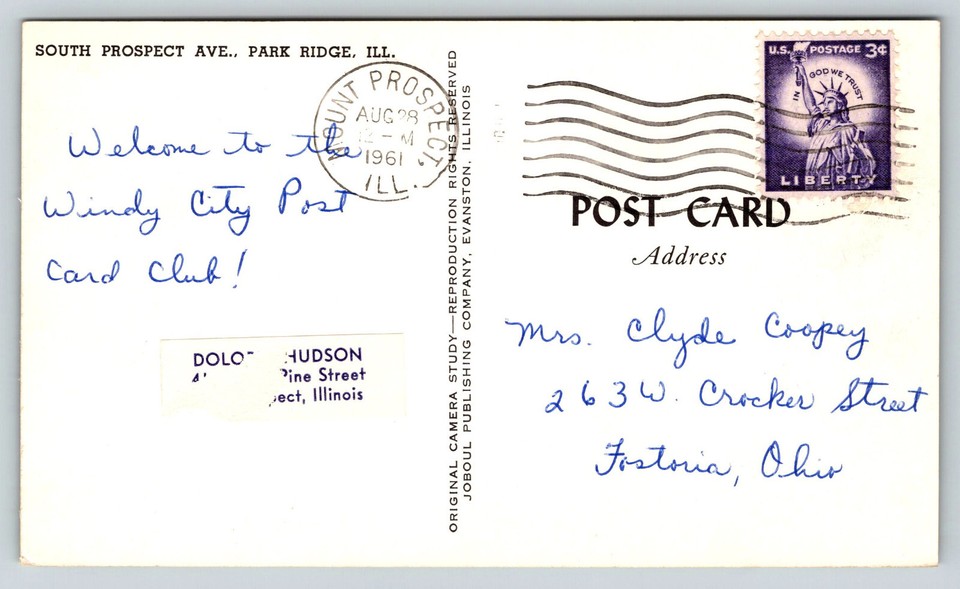 SOUTH PROSPECT AVE., PARK RIDGE, ILL.
Welcome to the
Windy City Post
Card Club!
HUDSON
Pine Street
Illinois
MOUNT PROSPECT,
AUG 28
1961
ILL.
ORIGINAL CAMERA STUDY—REPRODUCTION RIGHTS RESERVED
JOBOUL PUBLISHING COMPANY, EVANSTON, ILLINOIS
U.S. POSTAGE 3¢
IN GOD WE TRUST
LIBERTY
POST CARD
Address
Mrs. Clyde Coopey
263 W. Crocker Street
Fostoria, Ohio